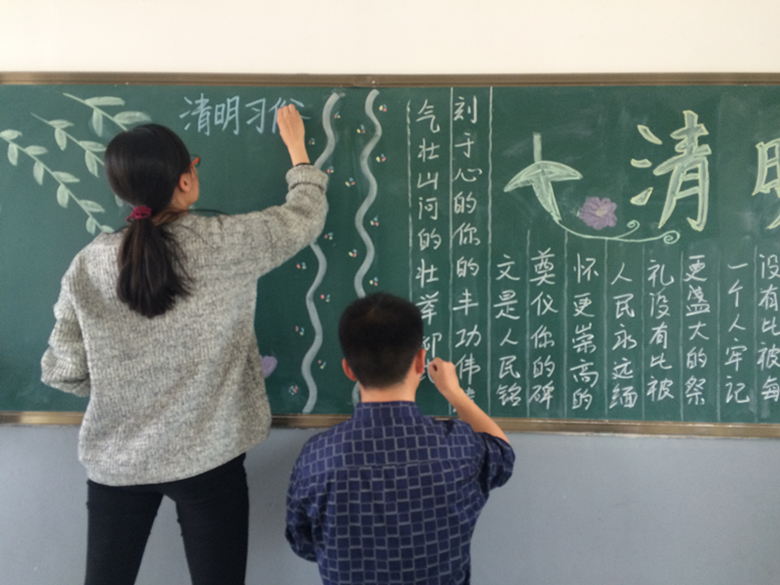 清明
没有比被每
一个人牢记
更盛大的祭
礼没有比被
人民永远缅
怀更崇高的
奠仪你的碑
文是人民铭
刻于心的你的丰功伟
气壮山河的壮举
清明习俗